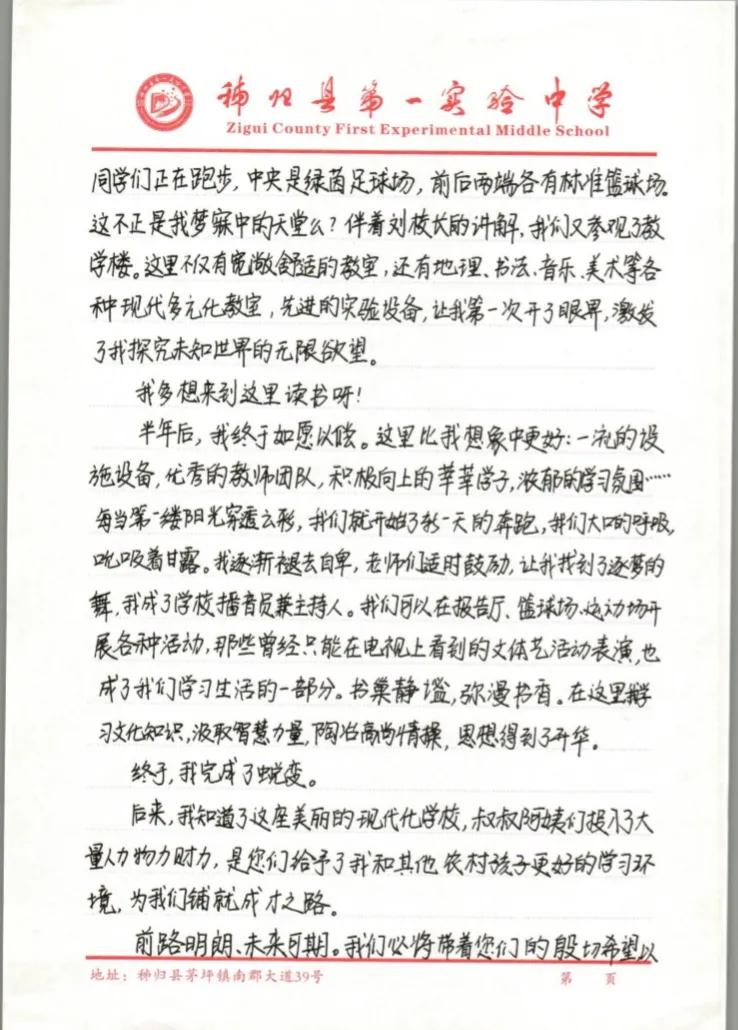 秭归县第一实验中学
Zigui County First Experimental Middle School
同学们正在跑步,中央是绿茵足球场,前后两端各有标准篮球场。
这不正是我梦寐中的天堂么?伴着刘校长的讲解,我们又参观了教
学楼。这里不仅有宽敞舒适的教室,还有地理、书法、音乐、美术等各
种现代多元化教室,先进的实验设备,让我第一次开了眼界,激发
了我探究未知世界的无限欲望。
我多想来到这里读书呀!
半年后,我终于如愿以偿。这里比我想象中更好:一流的设
施设备,优秀的教师团队,积极向上的莘莘学子,浓郁的学习氛围……
每当第一缕阳光穿透云彤,我们就开始了新一天的奔跑,我们大口的呼吸,
吮吸着甘露。我逐渐褪去自卑,老师们适时鼓励,让我找到了逐梦的
舞,我成了学校播音员兼主持人。我们可以在报告厅、篮球场、运动场开
展各种活动,那些曾经只能在电视上看到的文体艺活动表演,也
成了我们学习生活的一部分。书巢静谧,弥漫书香。在这里
习文化知识,汲取智慧力量,陶冶高尚情操,思想得到了升华。
终于,我完成了蜕变。
后来,我知道了这座美丽的现代化学校,叔叔阿姨们投入了大
量人力物力财力,是您们给予了我和其他农村孩子更好的学习环
境,为我们铺就成才之路。
前路明朗、未来可期。我们必将带着您们的殷切希望以
地址:秭归县茅坪镇南郡大道39号
第 页